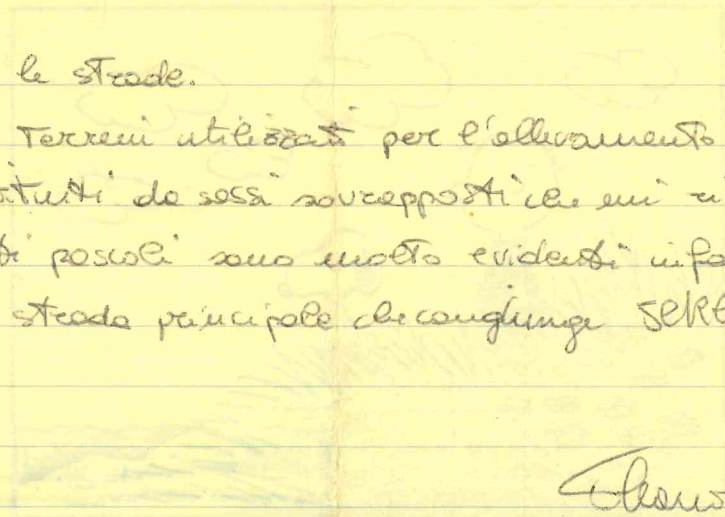 le strade.
Terreni utilizzati per l'allevamento
stituiti da sassi sovrapposti che mi ri
ti pascoli sono molto evidenti infa
strada principale checongiunge